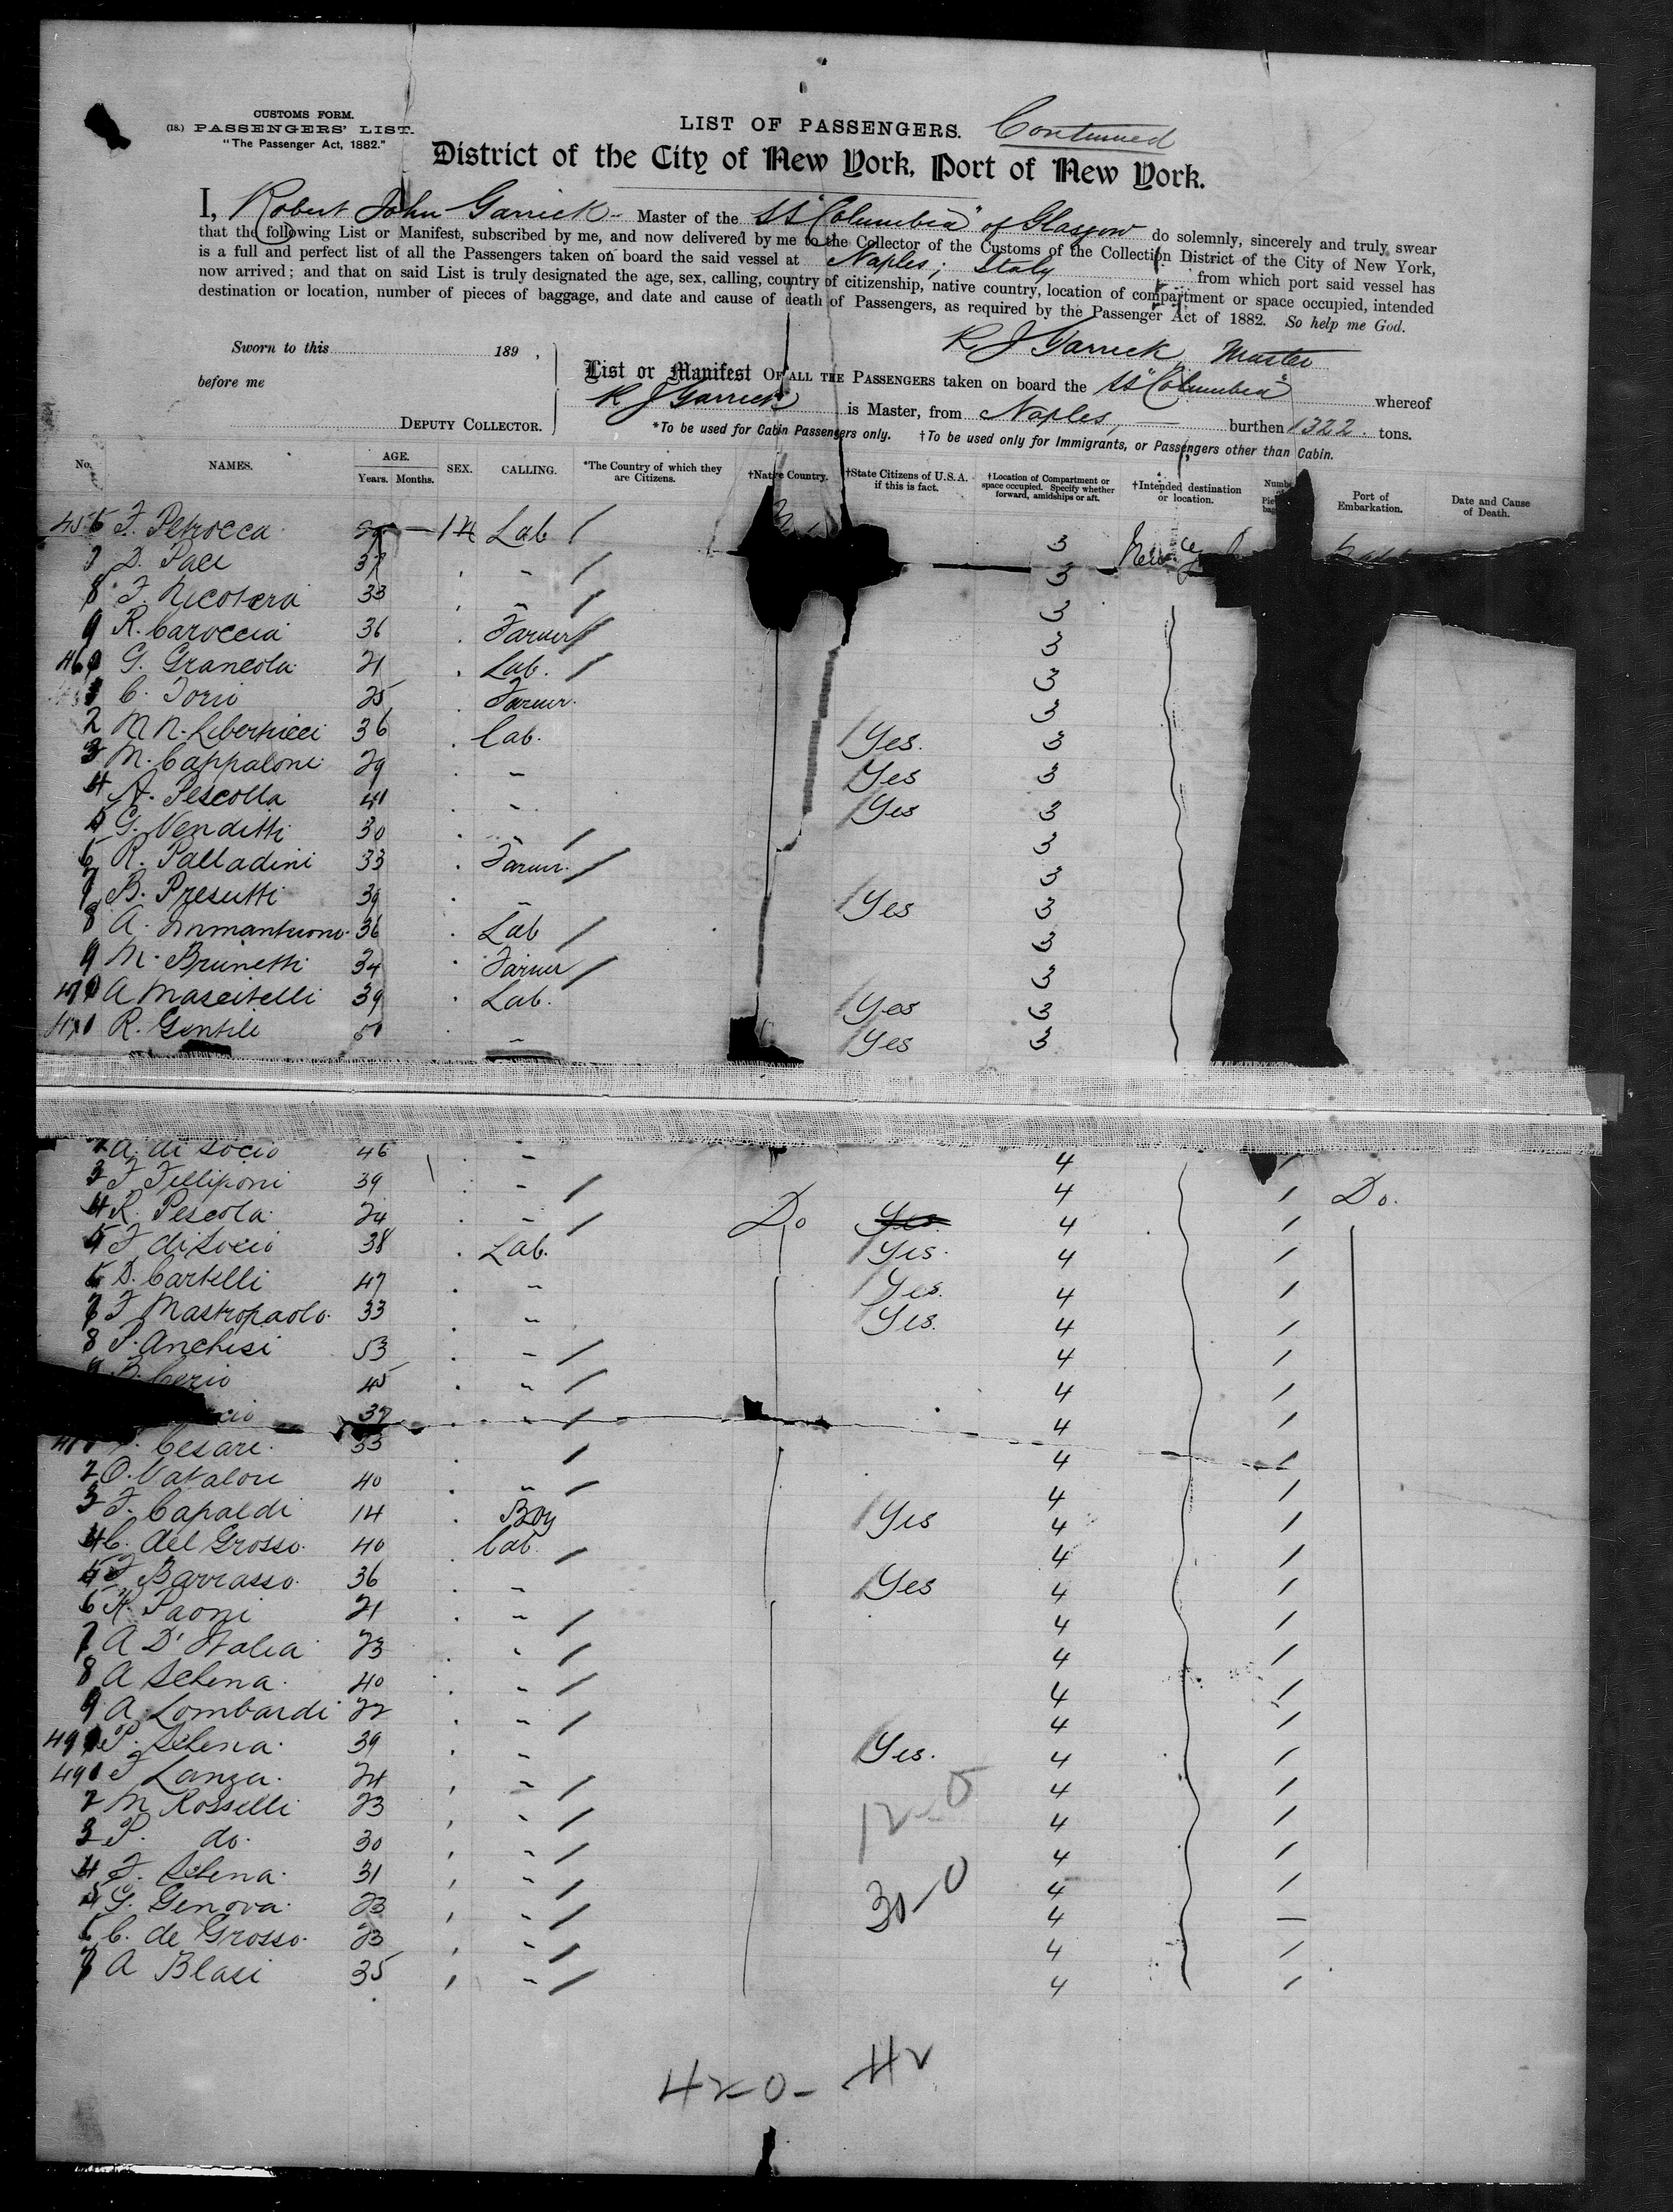 CUSTOMS FORM.
(18.) PASSENGERS' LIST.
"The Passenger Act, 1882."
LIST OF PASSENGERS. Continued
District of the City of New York, Port of New York.
I, Robert John Garrick - Master of the SS "Columbia" of Glasgow do solemnly, sincerely and truly swear
that the following List or Manifest, subscribed by me, and now delivered by me to the Collector of the Customs of the Collection District of the City of New York,
is a full and perfect list of all the Passengers taken on board the said vessel at Naples, Italy from which port said vessel has
now arrived; and that on said List is truly designated the age, sex, calling, country of citizenship, native country, location of compartment or space occupied, intended
destination or location, number of pieces of baggage, and date and cause of death of Passengers, as required by the Passenger Act of 1882. So help me God.
R J Garrick, Master
Sworn to this 189 ,
before me
DEPUTY COLLECTOR.
List or Manifest OF ALL THE PASSENGERS taken on board the SS "Columbia" whereof
R J Garrick is Master, from Naples, — burthen 1322 tons.
*To be used for Cabin Passengers only. †To be used only for Immigrants, or Passengers other than Cabin.
No. NAMES. AGE. Years. Months. SEX. CALLING. *The Country of which they are Citizens. †Native Country. †State Citizens of U.S.A. if this is fact. †Location of Compartment or space occupied. Specify whether forward, amidships or aft. †Intended destination or location. Port of Embarkation. Date and Cause of Death.
456 F. Petrocca Lab / 3 New
7 D. Pace 37 " / 3
8 F. Nicotera 33 " / 3
9 R. Caroccia 36 Farmer / 3
460 G. Grancola 21 Lab. / 3
1 C. Iorio 25 Farmer. 3
2 M N. Libertucci 36 Lab. Yes. 3
3 M. Cappalone 29 " Yes 3
4 A. Pescolla 41 " Yes 3
5 G. Venditti 30 " / 3
6 R. Palladini 33 Farmer. / 3
7 B. Presutti 39 " Yes 3
8 A. 36 Lab / 3
9 M. Brunetti 34 Farmer / 3
470 A Mascitelli 39 Lab. Yes 3
471 R. Gentile 50 " Yes 3
2 A. di Socio 46 " 4 /
3 F Filliponi 39 " / 4 / Do.
4 R. Pescola 24 " / Do 4 /
5 F di Socio 38 Lab. Yes. 4 /
6 D. Cartelli 47 " Yes. 4 /
7 F Mastropaolo 33 " Yes. 4 /
8 P. Anchisi 53 " / 4 /
9 B. Cerio 45 " / 4 /
cio " / 4 /
Cesare. 33 / 4 /
2 O. Natalone 40 " / 4 /
3 F. Capaldi 14 Boy Yes 4 /
4 C. del Grosso. 40 Lab. / 4 /
5 F Barrasso. 36 " Yes 4 /
6 K. Paoni 21 " / 4 /
7 A D'Italia 23 " / 4 /
8 A Schena. 40 " / 4 /
9 A Lombardi 22 " / 4 /
490 P. Schena. 39 " Yes. 4 /
491 F Lanza. 24 " / 4 /
2 M Rosselli 23 " / 4 /
3 P. do. 30 " / 4 /
4 F. Schena. 31 " / 4 /
5 G. Genova. 23 " / 4 —
6 C. de Grosso. 23 " / 4 /
7 A Blasi 35 " / 4 /
12-0
30-0
42-0- 42